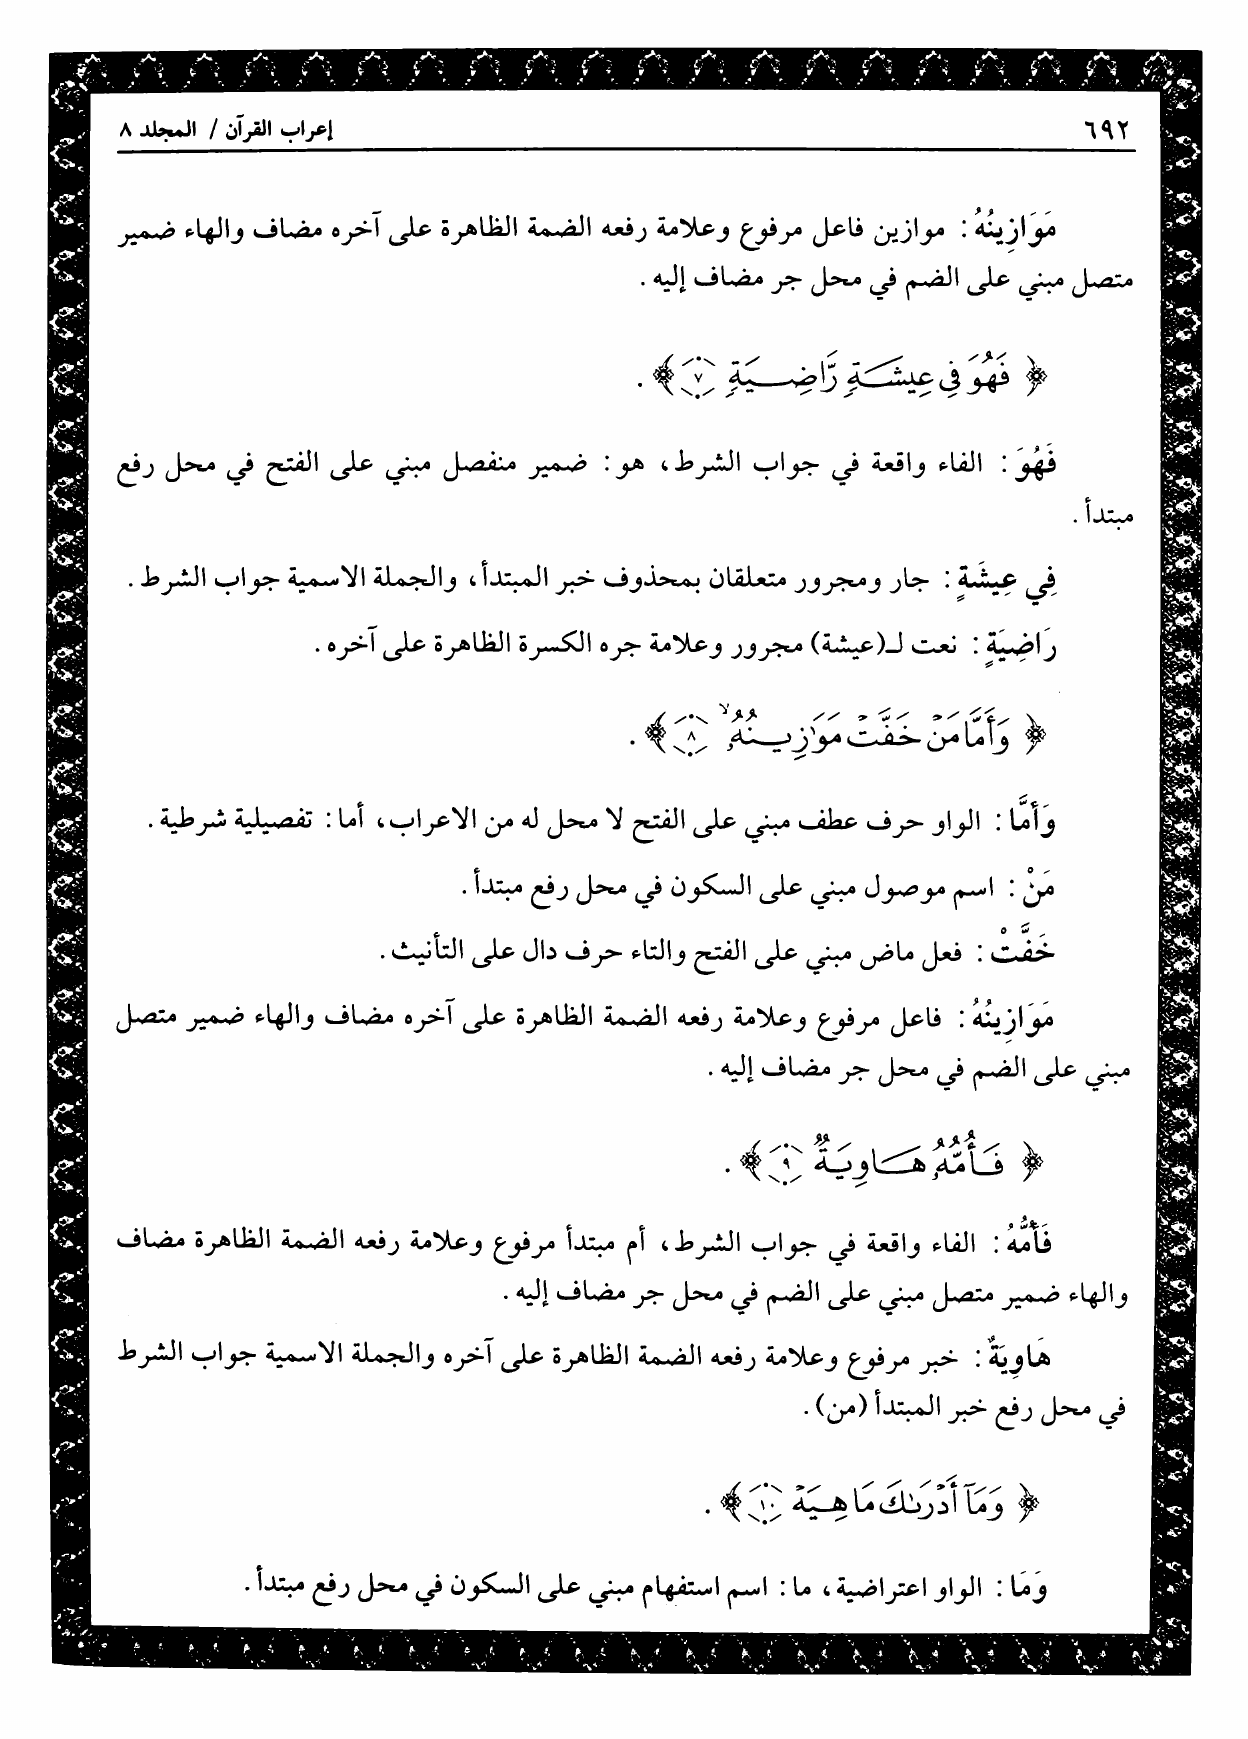 ٦٩٢
إعراب القرآن / المجلد ٨
مَوَازِينُهُ : موازين فاعل مرفوع وعلامة رفعه الضمة الظاهرة على آخره مضاف والهاء ضمير
متصل مبني على الضم في محل جر مضاف إليه .
﴿ فَهُوَ فِي عِيشَةٍ رَّاضِيَةٍ ٧ ﴾ .
فَهُوَ : الفاء واقعة في جواب الشرط، هو : ضمير منفصل مبني على الفتح في محل رفع
مبتدأ .
فِي عِيشَةٍ : جار ومجرور متعلقان بمحذوف خبر المبتدأ، والجملة الاسمية جواب الشرط .
رَاضِيَةٍ : نعت لـ(عيشة) مجرور وعلامة جره الكسرة الظاهرة على آخره .
﴿ وَأَمَّا مَنْ خَفَّتْ مَوَٰزِينُهُۥ ۙ ٨ ﴾ .
وَأَمَّا : الواو حرف عطف مبني على الفتح لا محل له من الاعراب، أما : تفصيلية شرطية .
مَنْ : اسم موصول مبني على السكون في محل رفع مبتدأ .
خَفَّتْ : فعل ماض مبني على الفتح والتاء حرف دال على التأنيث .
مَوَازِينُهُ : فاعل مرفوع وعلامة رفعه الضمة الظاهرة على آخره مضاف والهاء ضمير متصل
مبني على الضم في محل جر مضاف إليه .
﴿ فَأُمُّهُۥ هَاوِيَةٌ ٩ ﴾ .
فَأُمُّهُ : الفاء واقعة في جواب الشرط، أم مبتدأ مرفوع وعلامة رفعه الضمة الظاهرة مضاف
والهاء ضمير متصل مبني على الضم في محل جر مضاف إليه .
هَاوِيَةٌ : خبر مرفوع وعلامة رفعه الضمة الظاهرة على آخره والجملة الاسمية جواب الشرط
في محل رفع خبر المبتدأ (من) .
﴿ وَمَآ أَدْرَىٰكَ مَا هِيَهْ ١٠ ﴾ .
وَمَا : الواو اعتراضية، ما : اسم استفهام مبني على السكون في محل رفع مبتدأ .